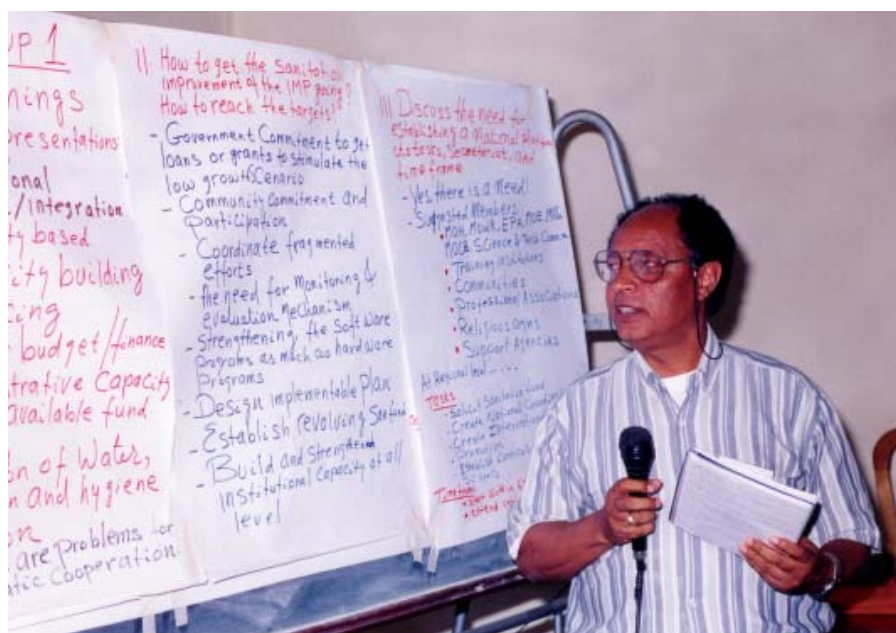 up 1
nings
presentations
ional
./integration
ty based
city building
cing
budget/finance
trative capacity
available fund
on of Water,
n and hygiene
on
are problems for
atic cooperation.
II How to get the Sanitation
improvement of the IMP going?
How to reach the targets?
- Government Commitment to get
loans or grants to stimulate the
low growth Scenario
- Community Commitment and
participation
- Coordinate fragmented
efforts
- the need for Monitoring &
evaluation mechanism
- Strengthening the Soft ware
programs as much as hardware
programs
- Design implementable Plan
- Establish revolving San fund
- Build and strengthen
institutional capacity at all
level
III Discuss the need for
establishing a National platform
secretariat, and
time frame
- Yes there is a Need!
- Suggested Members
• MOH, MOWR, EPA, MOE,
MOCB, Science & Tech Comm
• Training Institutions
• Communities
• Professional Associations
• Religious orgns
• Support Agencies
At Regional level ....
Tasks
- Solicit Sanitation fund
- Create National
- Create
- Promotion
- Establish
Schools